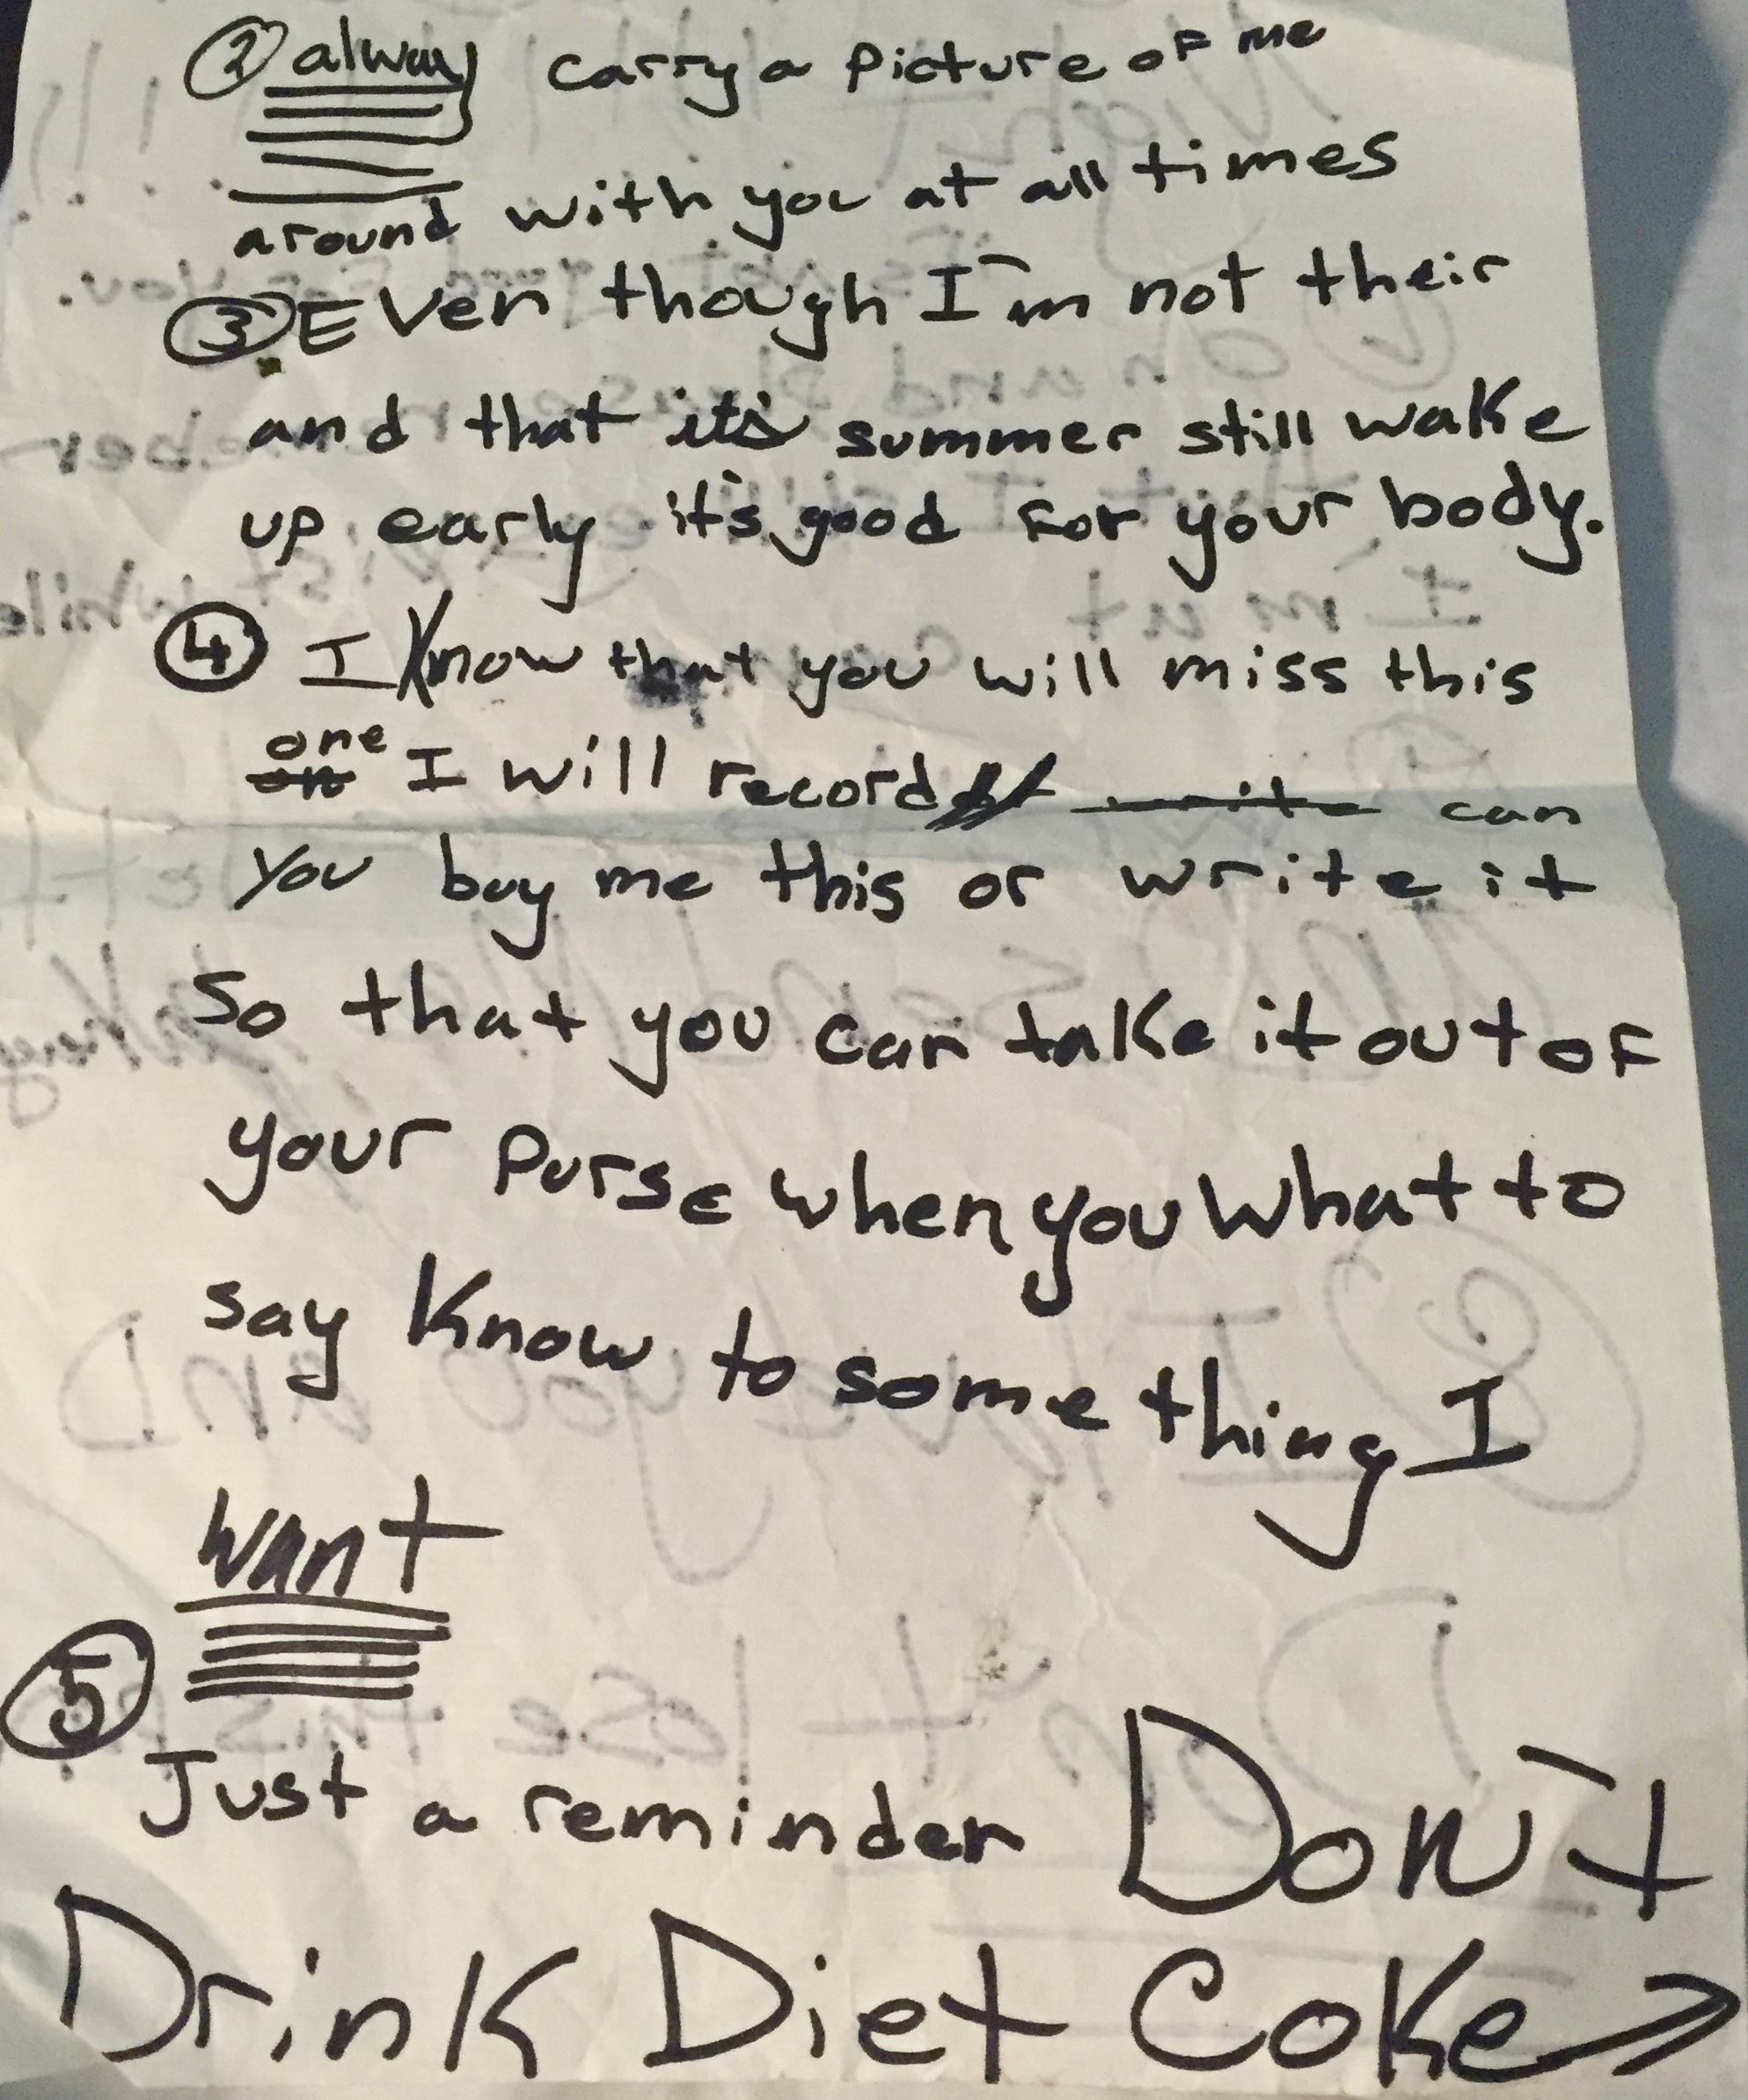 ② alway carry a picture of me
around with you at all times
③ Even though I'm not their
and that it's summer still wake
up early it's good for your body.
④ I know that you will miss this
one I will record write can
you buy me this or write it
so that you can take it out of
your purse when you what to
say know to something I
want
⑤
Just a reminder Don't
Drink Diet Coke →